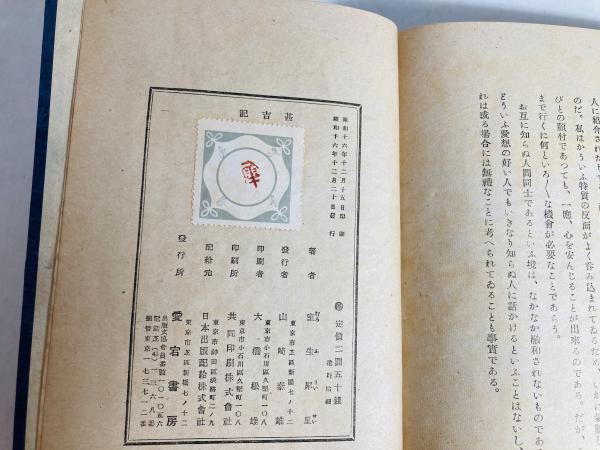 人に紹介された
のだ。私はかういふ特質の反面がよく呑み込まれてゐ
びとの顏付であつても、一應、心を安んじることが出來るのである。だが、
まで行くに何といろ〱な機會が必要なことであらう。
お互に知らぬ人間同士であるといふ境は、なかなか融和されないものである
どういふ愛想の好い人でもいきなり知らぬ人に話かけるといふことはないし、
れは或る場合には無禮なことに考へられてゐることも事實である。
甚吉記
昭和十六年十二月十五日印刷
昭和十六年十二月二十日發行
犀
定價二圓五十錢
著者 室生犀星
むろ ふ さい せい
東京市芝區新橋七ノ十二
發行者 山崎泰雄
東京市小石川區久堅町一〇八
印刷者 大橋松雄
東京市小石川區久堅町一〇八
印刷所 共同印刷株式會社
東京市神田區淡路町二ノ九
配給元 日本出版配給株式會社
東京市芝區新橋七ノ十二
發行所 愛宕書房
出版文協會員番號一〇一〇五六
電話芝(43)一三六八番
振替東京一七三七一二番